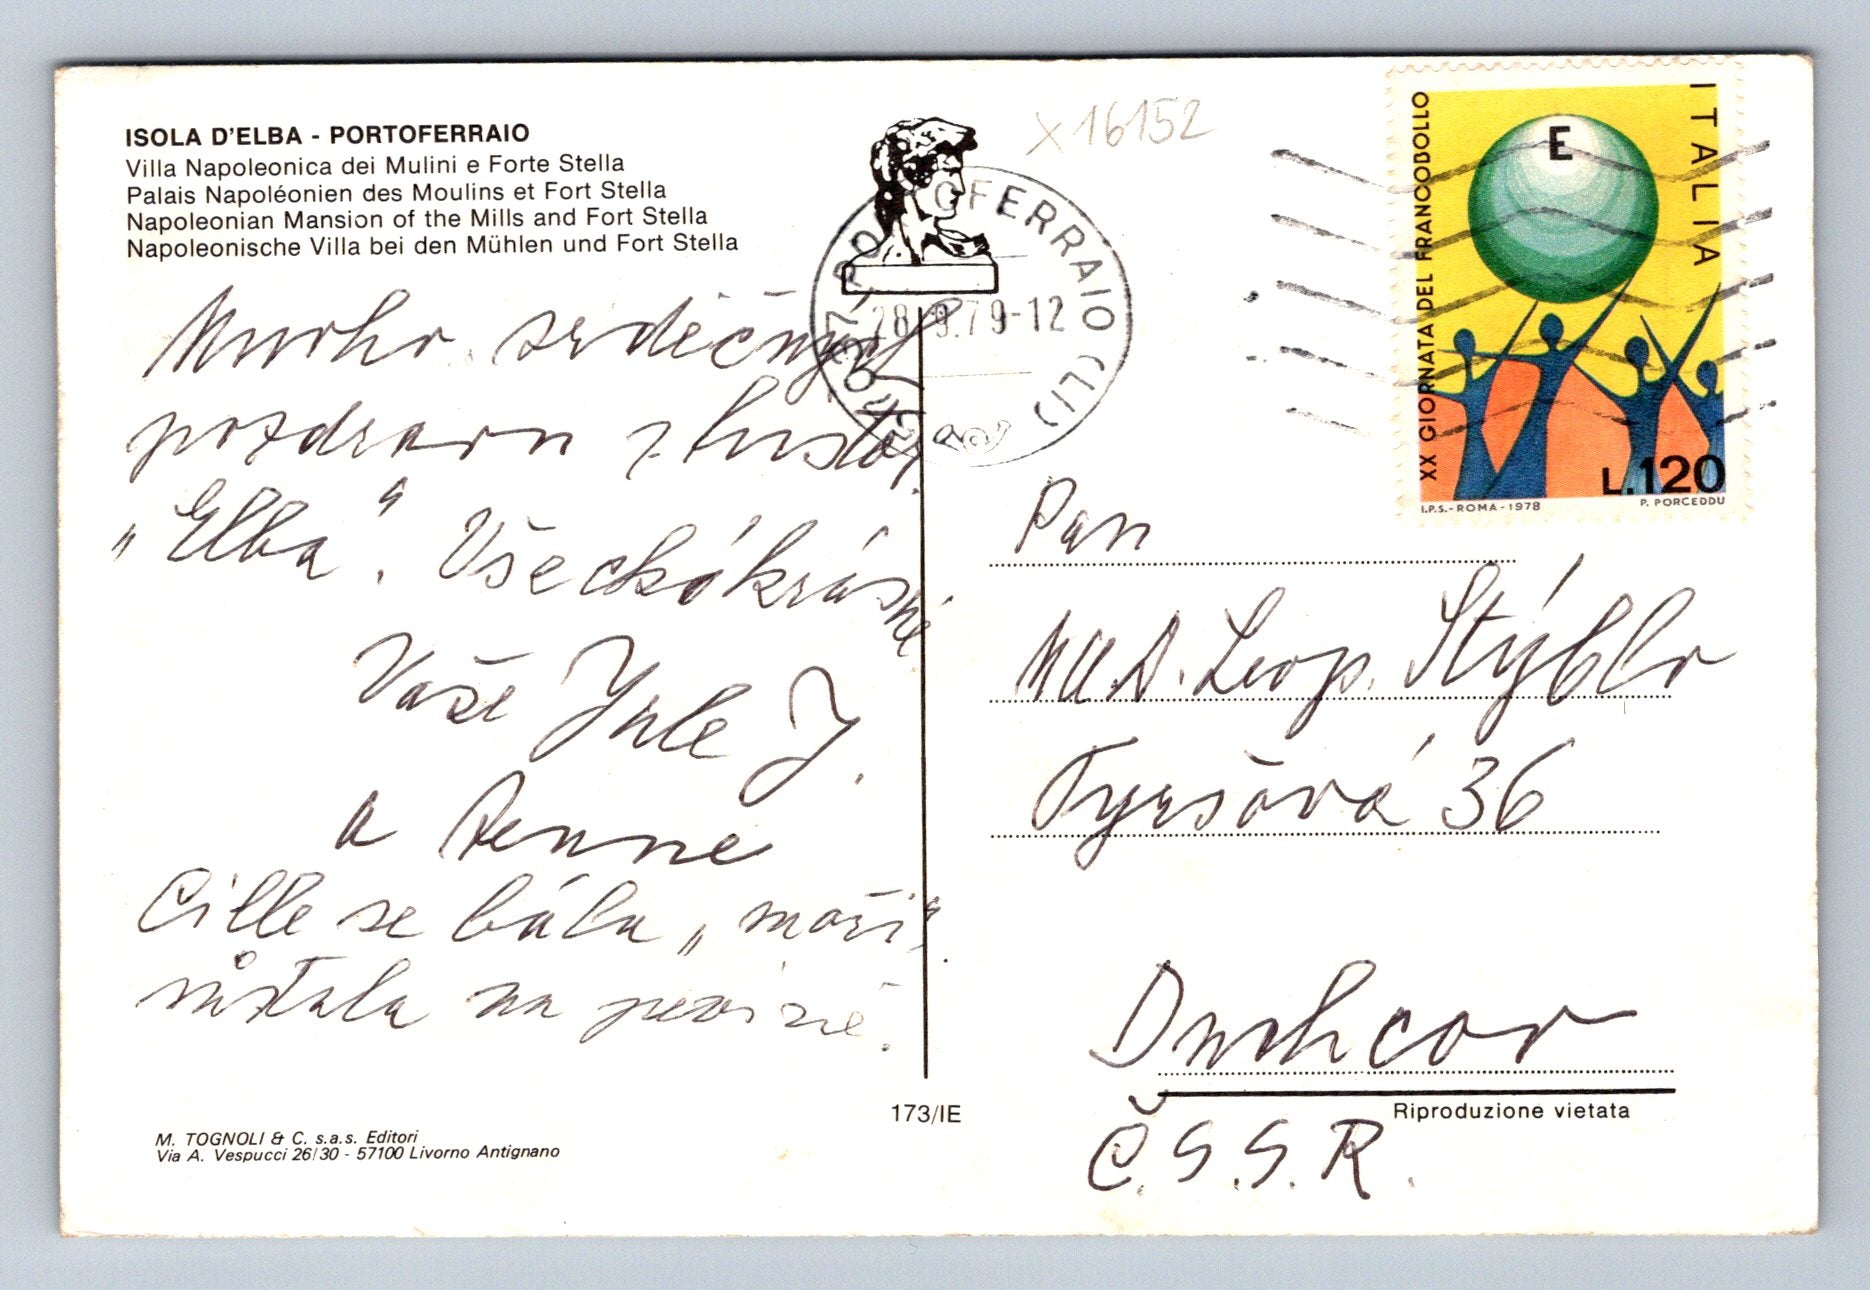 ISOLA D'ELBA - PORTOFERRAIO
Villa Napoleonica dei Mulini e Forte Stella
Palais Napoléonien des Moulins et Fort Stella
Napoleonian Mansion of the Mills and Fort Stella
Napoleonische Villa bei den Mühlen und Fort Stella
x16152
PORTOFERRAIO (LI)
28.9.79-12
ITALIA
XX GIORNATA DEL FRANCOBOLLO
E
L.120
I.P.S.-ROMA-1978
P. PORCEDDU
Mnoho srdečných
pozdravů z
„Elba“. Všecko krásné
Vaše J.
a
Cille se bála „moři“
zůstala na
Pan
MUDr. Leop. Stýblo
Tyršová 36
Duchcov
Č.S.S.R.
Riproduzione vietata
173/IE
M. TOGNOLI & C. s.a.s. Editori
Via A. Vespucci 26/30 - 57100 Livorno Antignano